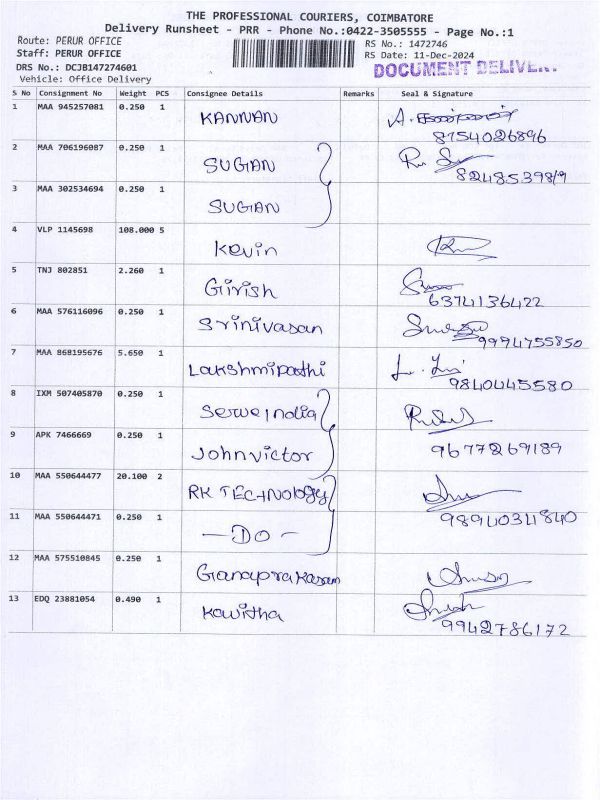 THE PROFESSIONAL COURIERS, COIMBATORE
Delivery Runsheet - PRR - Phone No.:0422-3505555 - Page No.:1
Route: PERUR OFFICE RS No.: 1472746
Staff: PERUR OFFICE RS Date: 11-Dec-2024
DRS No.: DCJB147274601 DOCUMENT DELIVER
Vehicle: Office Delivery
S No Consignment No Weight PCS Consignee Details Remarks Seal & Signature
1 MAA 945257081 0.250 1 KANNAN 8754026896
2 MAA 706196087 0.250 1 SUGIAN
3 MAA 302534694 0.250 1 SUGIAN
4 VLP 1145698 108.000 5 Kevin
5 TNJ 802851 2.260 1 Girish 6374136422
6 MAA 576116096 0.250 1 Srinivasan 9994755850
7 MAA 868195676 5.650 1 Lakshmipathi 9840445580
8 IXM 507405870 0.250 1 Serve india
9 APK 7466669 0.250 1 John victor 9677269189
10 MAA 550644477 20.100 2 RK TECHNOlogy
11 MAA 550644471 0.250 1 — DO — 9894034840
12 MAA 575510845 0.250 1 Gianaprakasam
13 EDQ 23881054 0.490 1 Kavitha 9942786172